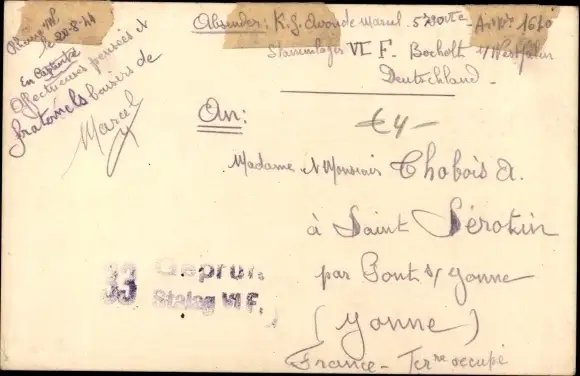 le 20-8-41
En Captivité
Affectueuses pensées et
fraternels baisers de
Marcel
Absender: K.G. Marcel
Stammlager VI F. Bocholt i/Westfalen
Deutschland.
An:
€4-
Madame et Monsieur Chobois A.
à Saint Sérotin
par Pont s/ Yonne
(Yonne)
France - Terre occupé
33 Geprüft
Stalag VI F.